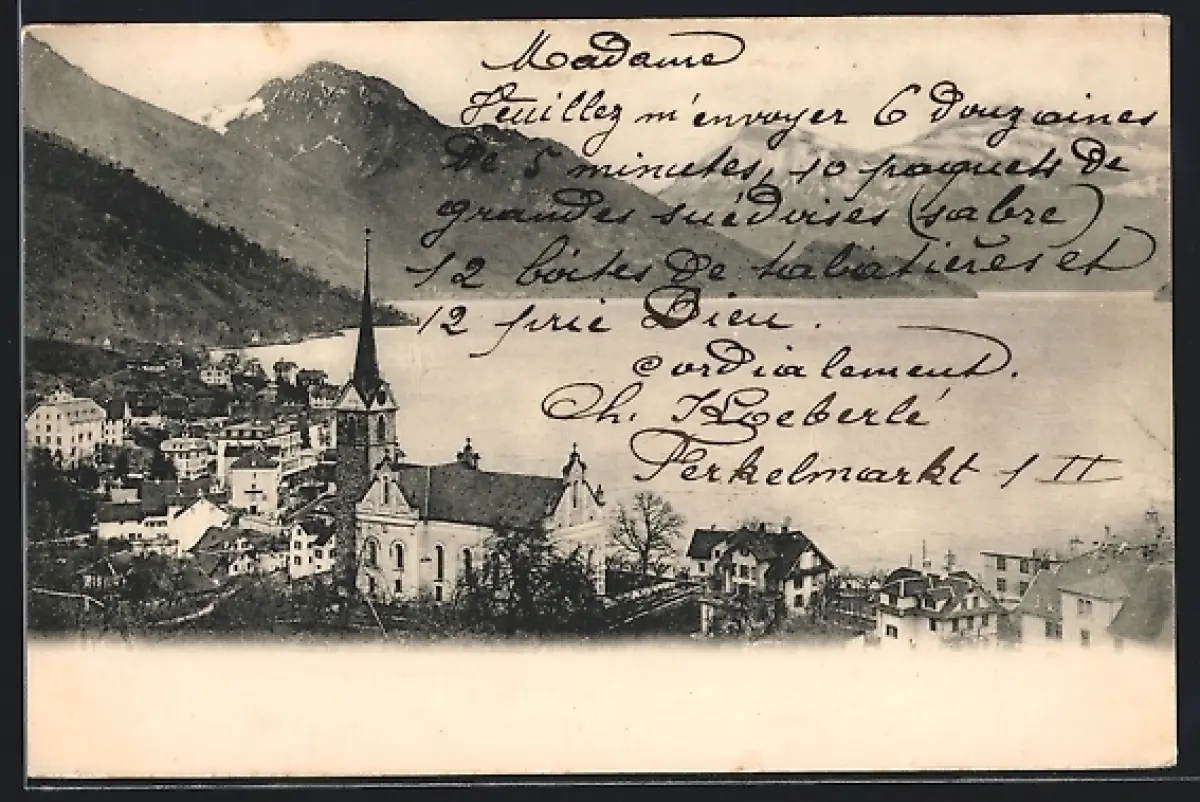 Madame
Veuillez m'envoyer 6 Douzaines
De 5 minutes, 10 paquets De
grandes suédoises (sabre)
12 boîtes De tabatières et
12 prie Dieu.
cordialement.
Ch. Koeberlé
Ferkelmarkt 1 II